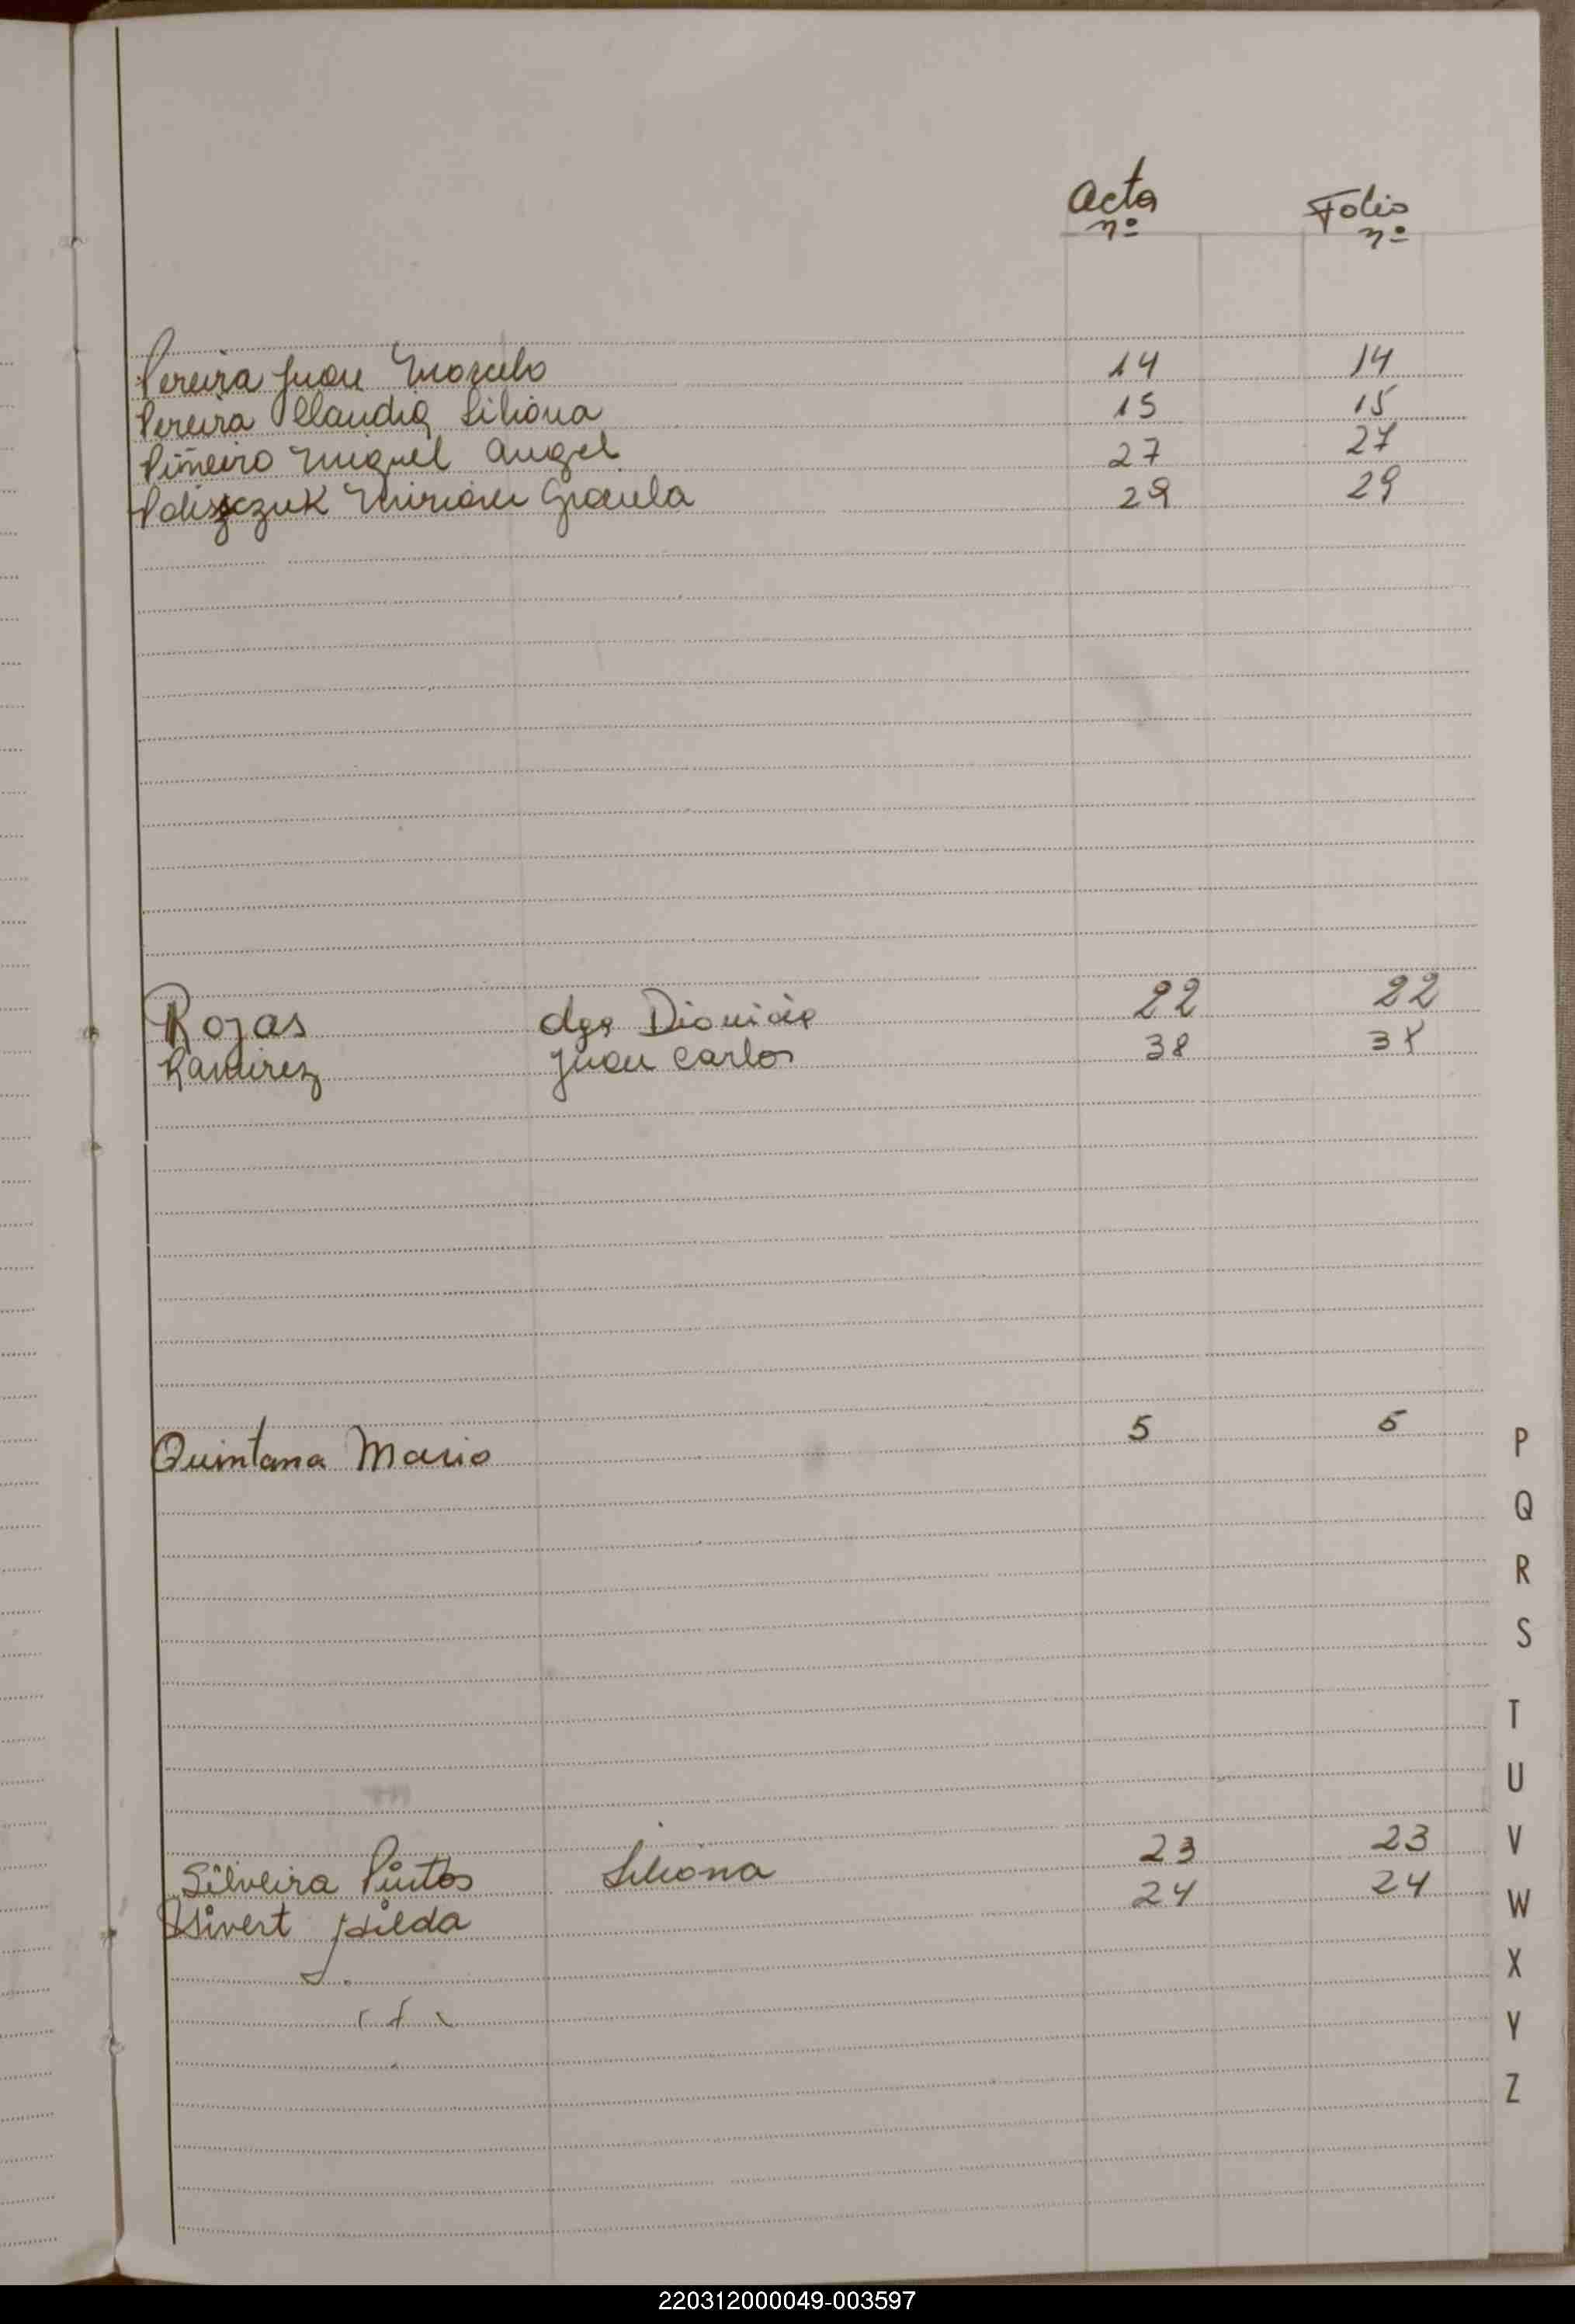 Acta Folio
nº nº
Pereira Juan Marcelo 14 14
Pereira Claudia Liliana 15 15
Piñeiro Miguel Angel 27 27
Poliszczuk Miriam Graciela 29 29
Rojas Olga Dionicia 22 22
Ramirez Juan Carlos 38 38
Quintana Mario 5 5
Silveira Pintos Liliana 23 23
Sivert Hilda 24 24
P
Q
R
S
T
U
V
W
X
Y
Z
220312000049-003597